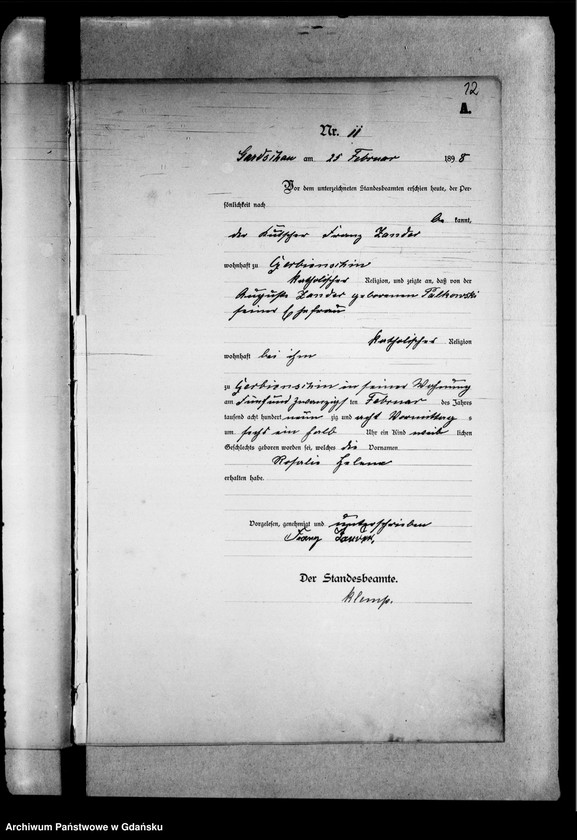 12
A.
Nr. 11
Gardschau am 25 Februar 1898
Vor dem unterzeichneten Standesbeamten erschien heute, der Per-
sönlichkeit nach
be kannt,
der Kutscher Franz Zander
wohnhaft zu Gerbienschin
katholischer Religion, und zeigte an, daß von der
Auguste Zander geborenen Palkowski
seiner Ehefrau
katholischer Religion
wohnhaft bei ihm
zu Gerbienschin in seiner Wohnung
am fünfundzwanzigsten Februar des Jahres
tausend acht hundert neun zig und acht Vormittags
um sechs ein halb Uhr ein Kind weib lichen
Geschlechts geboren worden sei, welches die Vornamen
Rosalie Helena
erhalten habe.
Vorgelesen, genehmigt und unterschrieben
Franz Zander.
Der Standesbeamte.
Klemp.
Archiwum Państwowe w Gdańsku